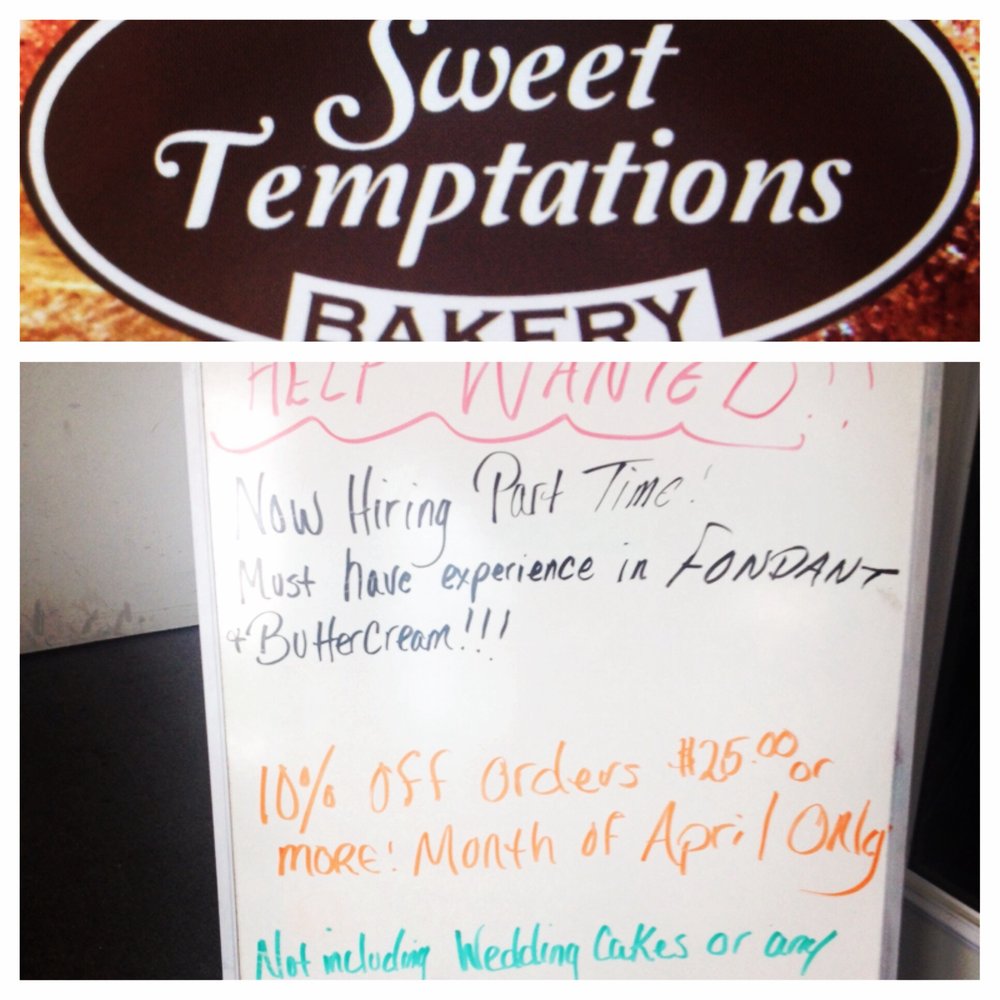 Sweet
Temptations
BAKERY
HELP WANTED!!
Now Hiring Part Time!
Must have experience in FONDANT
+ ButterCream!!!
10% off orders $25.00 or
more! Month of April Only
Not including Wedding Cakes or any